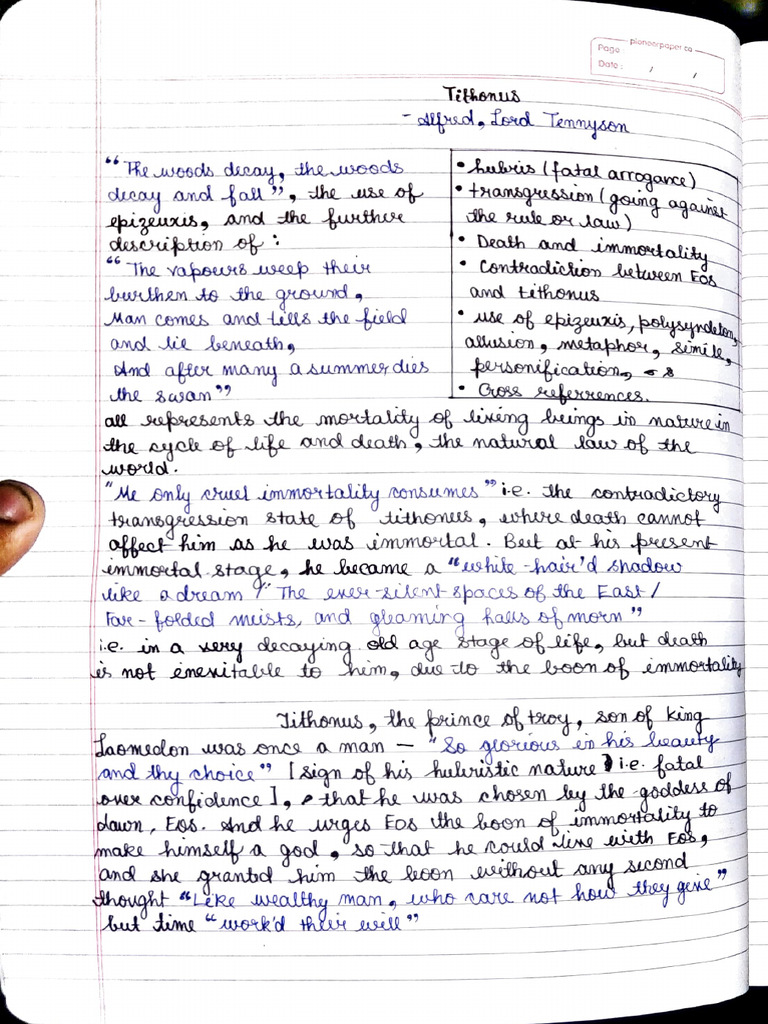 pioneerpaper.co
Page
Date : / /
Tithonus
- Alfred, Lord Tennyson
“The woods decay, the woods
decay and fall”, the use of
epizeuxis, and the further
description of :
“The vapours weep their
burthen to the ground,
Man comes and tells the field
and lie beneath,
And after many a summer dies
the swan”
• hubris (fatal arrogance)
• transgression (going against
the rule or law)
• Death and immortality
• Contradiction between Eos
and tithonus
• use of epizeuxis, polysyndeton,
allusion, metaphor, simile,
personification,
• Cross referrences.
all represents the mortality of living beings in nature in
the cycle of life and death, the natural law of the
world.
"Me only cruel immortality consumes" i.e. the contradictory
transgression state of tithonus, where death cannot
affect him as he was immortal. But at his present
immortal stage, he became a "white-hair'd shadow
like a dream / "The ever-silent spaces of the East/
Far-folded mists, and gleaming halls of morn"
i.e. in a very decaying old age stage of life, but death
is not inevitable to him, due to the boon of immortality
Tithonus, the prince of troy, son of king
Laomedon was once a man — "So glorious in his beauty
and thy choice" [sign of his hubristic nature i.e. fatal
over confidence], that he was chosen by the goddess of
dawn, Eos. And he urges Eos the boon of immortality to
make himself a god, so that he could live with Eos,
and she grantd him the boon without any second
thought "Like wealthy man, who care not how they give"
but time "work'd their will"